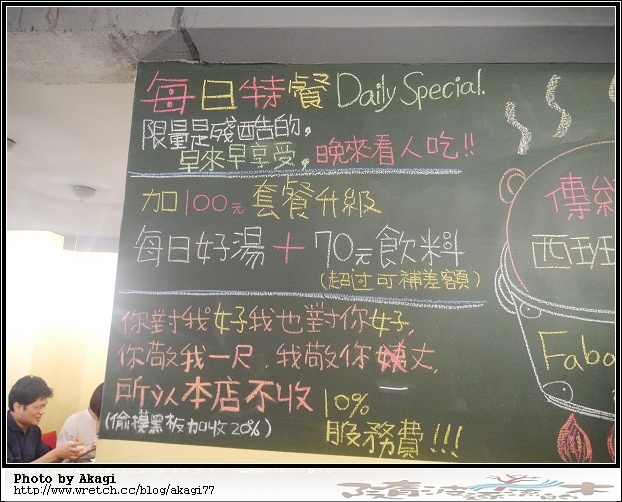 每日特餐 Daily Special.
限量是殘酷的,
早來早享受, 晚來看人吃!!
加100元 套餐升級
每日好湯 + 70元飲料
(超过可補差額)
你對我好我也對你好,
你敬我一尺, 我敬你一丈,
所以本店不收 10%
服務費!!!
(偷摸黑板加收20%)
傳統
西班
Faba
Photo by Akagi
http://www.wretch.cc/blog/akagi77